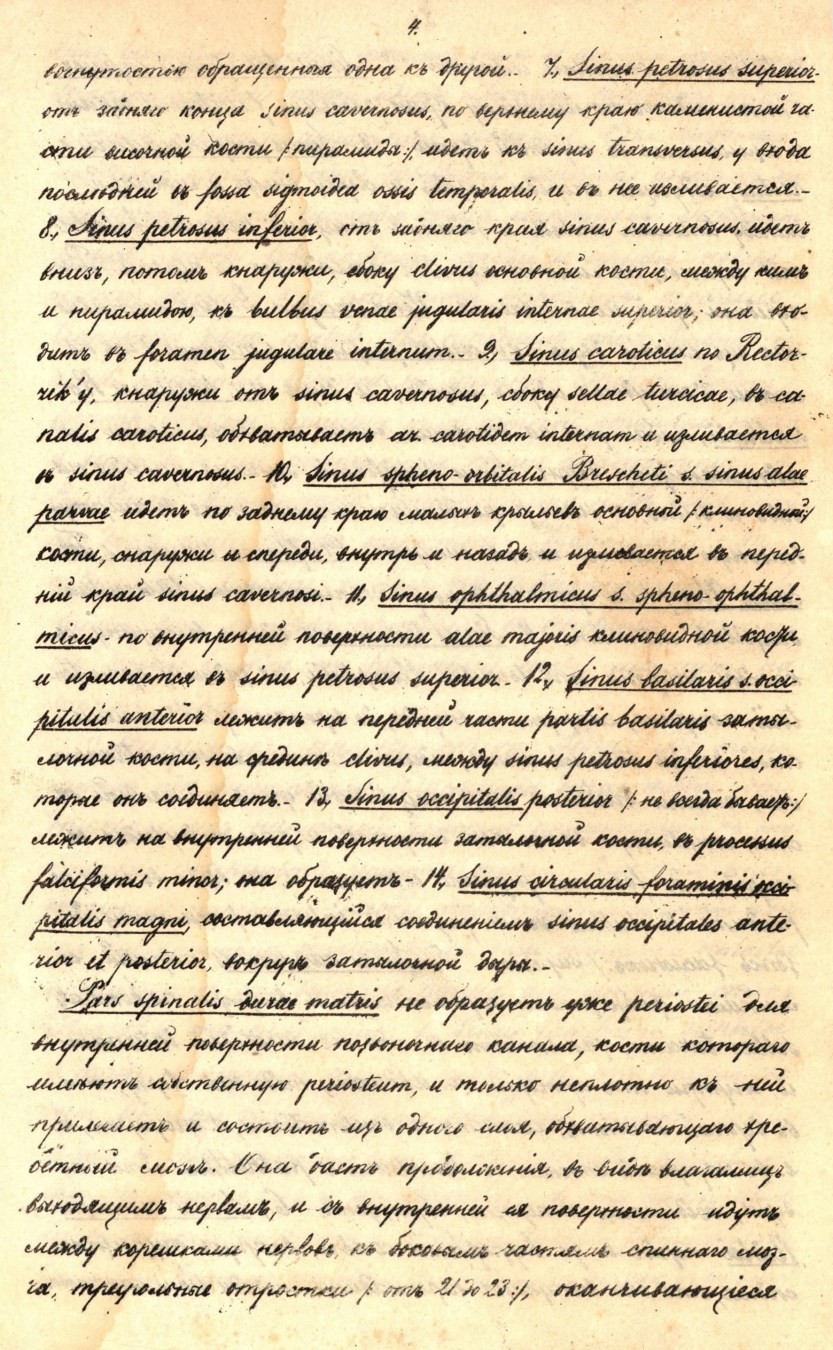 4.
вогнутостью обращенныя одна къ другой.- 7, Sinus petrosus superior-
отъ задняго конца sinus cavernosus, по верхнему краю каменистой ча-
сти височной кости /:пирамиды:/, идетъ къ sinus transversus, у входа
послѣдней въ fossa sigmoidea ossis temporalis, и въ нее изливается.-
8, Sinus petrosus inferior, отъ задняго края sinus cavernosus, идетъ
внизъ, потомъ кнаружи, сбоку clivus основной кости, между нимъ
и пирамидою, къ bulbus venae jugularis internae superior; она вхо-
дитъ въ foramen jugulare internum.- 9, Sinus caroticus по Rector-
zik'у, кнаружи отъ sinus cavernosus, сбоку sellae turcicae, въ ca-
nalis caroticus, обхватываетъ ar. carotidem internam и изливается
въ sinus cavernosus.- 10, Sinus spheno-orbitalis Brescheti s. sinus alae
parvae идетъ по заднему краю малыхъ крыльевъ основной /:клиновидной:/
кости, снаружи и спереди, внутрь и назадъ и изливается въ перед-
ній край sinus cavernosi.- 11, Sinus ophthalmicus s. spheno-ophthal-
micus- по внутренней поверхности alae majoris клиновидной кости
и изливается въ sinus petrosus superior.- 12, Sinus basilaris s. occi-
pitalis anterior лежитъ на передней части partis basilaris заты-
лочной кости, на срединѣ clivus, между sinus petrosus inferiores, ко-
торые онъ соединяетъ.- 13, Sinus occipitalis posterior /:не всегда бываетъ:/
лежитъ на внутренней поверхности затылочной кости, въ processus
falciformis minor; она образуетъ- 14, Sinus circularis foraminis occi-
pitalis magni, составляющійся соединеніемъ sinus occipitales ante-
rior et posterior, вокругъ затылочной дыры.-
Pars spinalis durae matris не образуетъ уже periostei для
внутренней поверхности позвоночнаго канала, кости котораго
имѣютъ собственную periosteum, и только неплотно къ ней
прилегаетъ и состоитъ изъ одного слоя, обхватывающаго хре-
бетный мозгъ. Она даетъ продолженія, въ видѣ влагалищъ
выходящимъ нервамъ, и съ внутренней ея поверхности идутъ
между корешками нервовъ, къ боковымъ частямъ спиннаго моз-
га, треугольные отростки /:отъ 21 до 23:/, оканчивающіеся